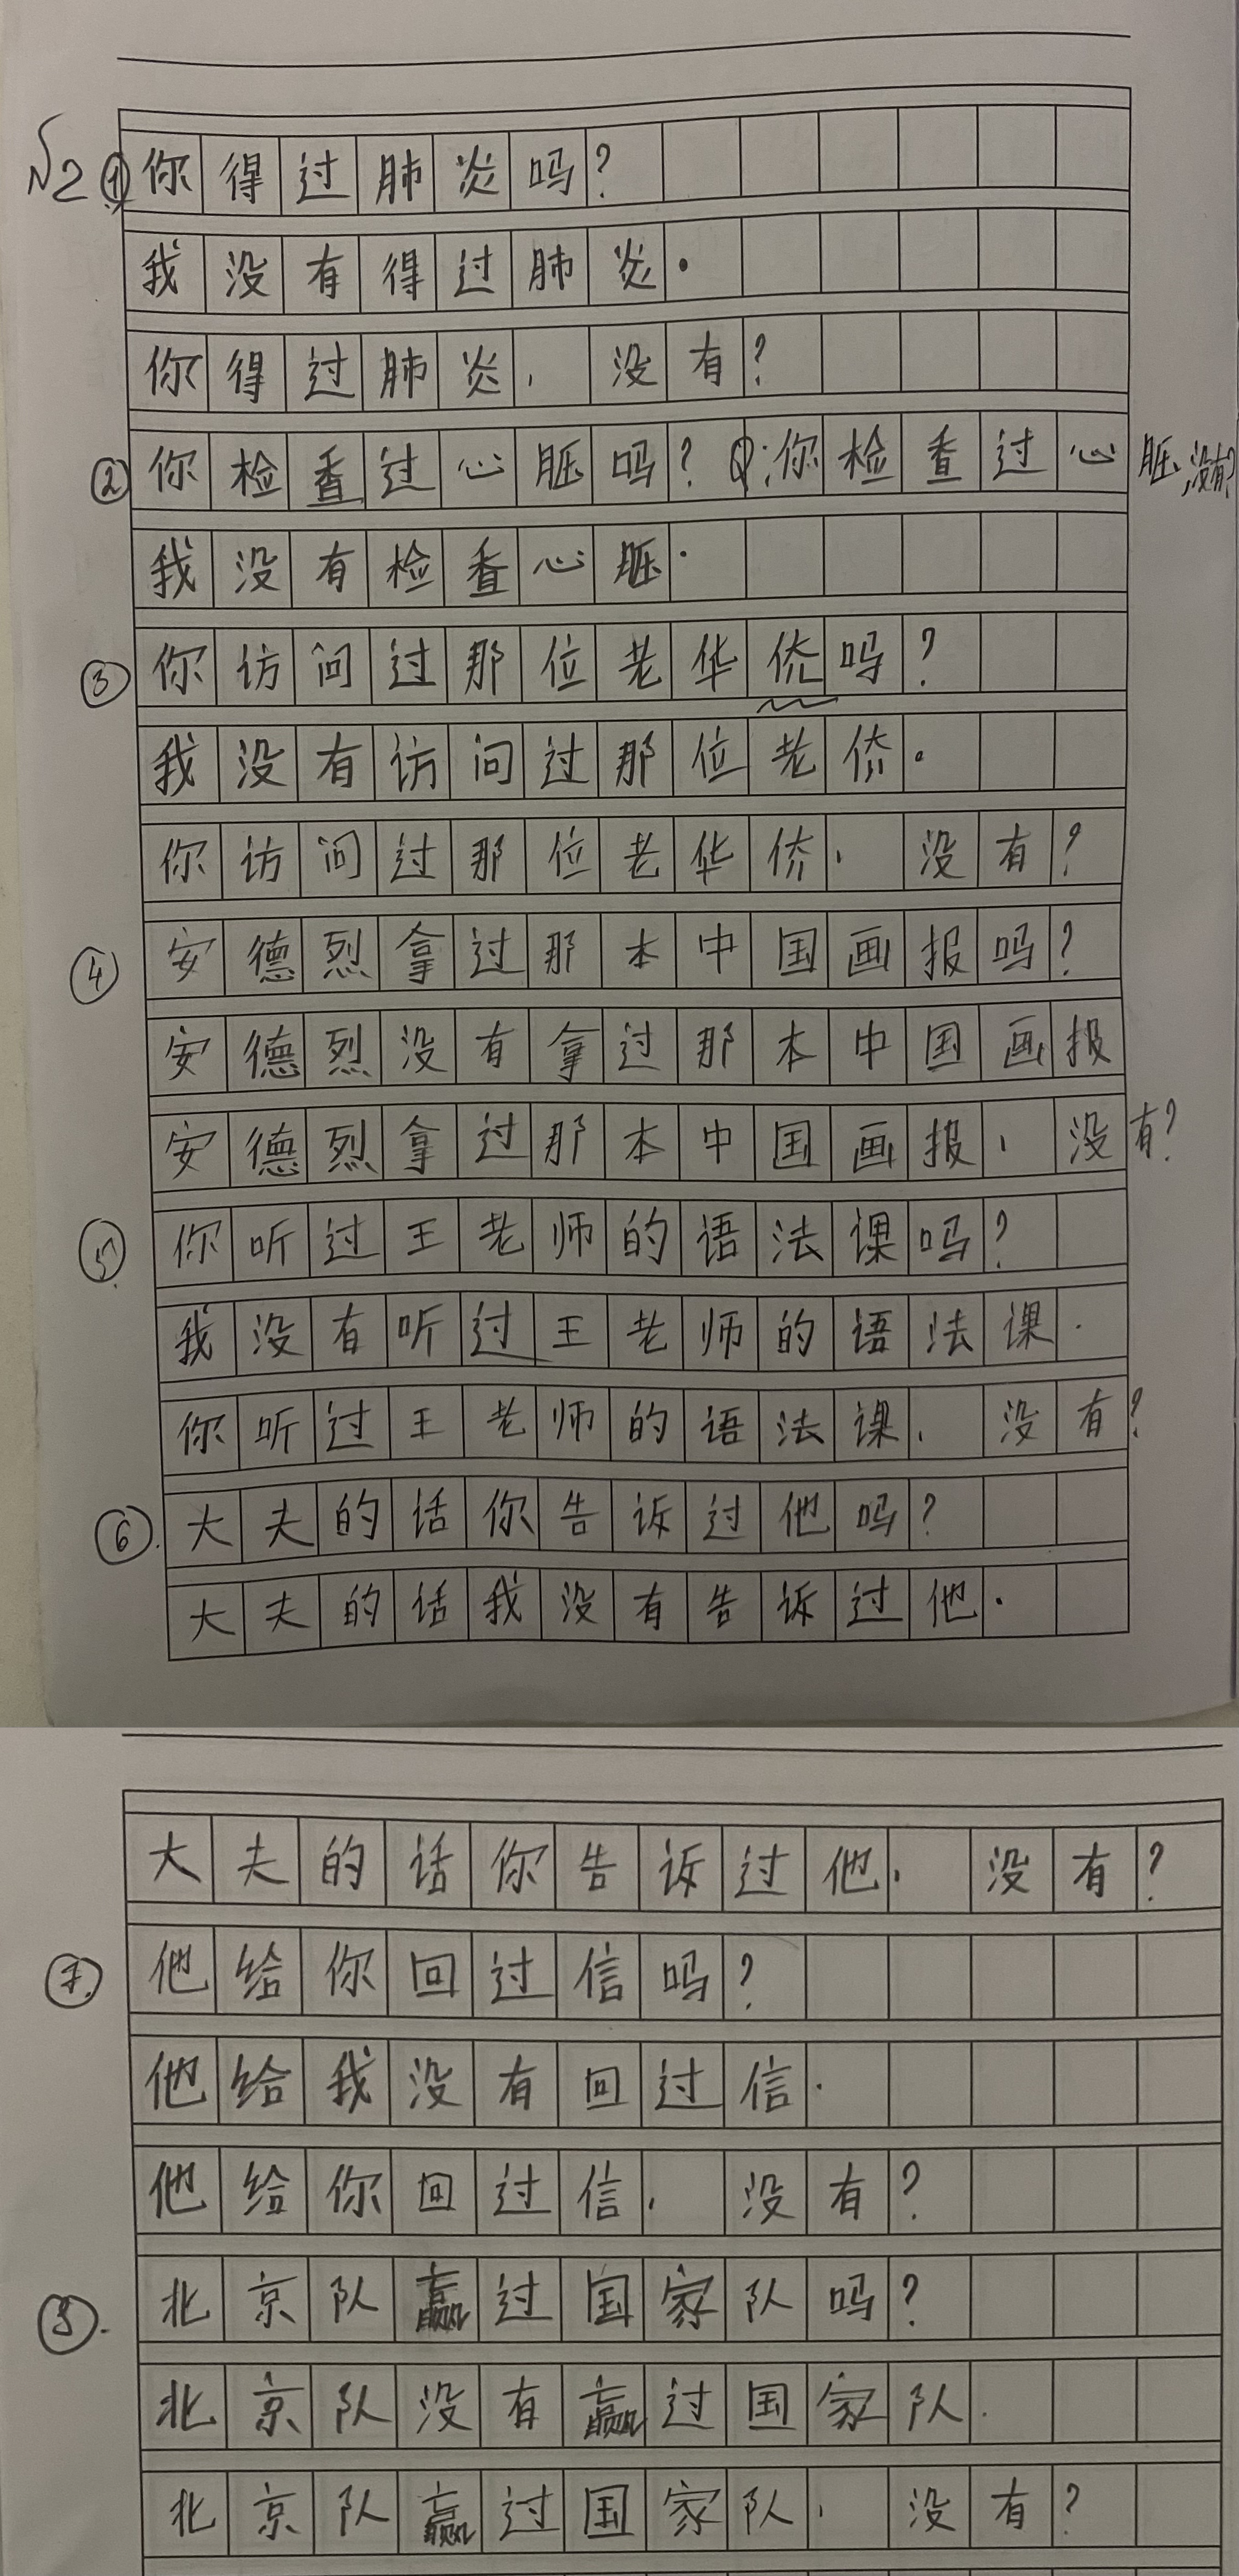 №2 ① 你得过肺炎吗?
我没有得过肺炎.
你得过肺炎, 没有?
② 你检查过心脏吗? Q:你检查过心脏,没有?
我没有检查心脏.
③ 你访问过那位老华侨吗?
我没有访问过那位老侨.
你访问过那位老华侨, 没有?
④ 安德烈拿过那本中国画报吗?
安德烈没有拿过那本中国画报
安德烈拿过那本中国画报, 没有?
⑤ 你听过王老师的语法课吗?
我没有听过王老师的语法课.
你听过王老师的语法课, 没有?
⑥. 大夫的话你告诉过他吗?
大夫的话我没有告诉过他.
大夫的话你告诉过他, 没有?
⑦ 他给你回过信吗?
他给我没有回过信.
他给你回过信, 没有?
⑧. 北京队赢过国家队吗?
北京队没有赢过国家队.
北京队赢过国家队, 没有?